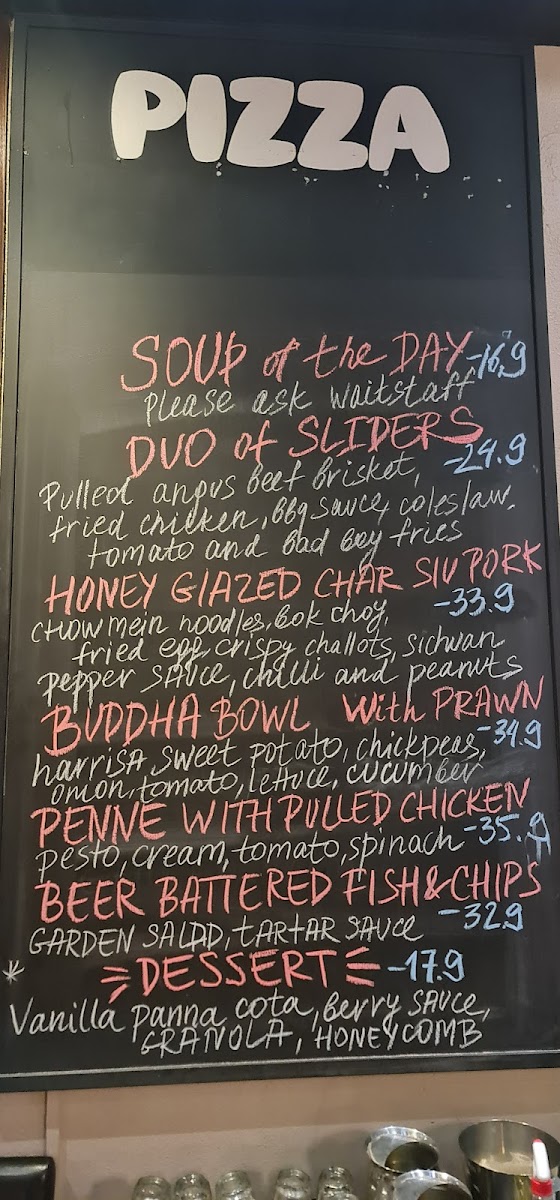 PIZZA
SOUP of the DAY -16.9
Please ask waitstaff
DUO of SLIDERS
Pulled angus beef brisket, -24.9
fried chicken, bbq sauce, coleslaw.
tomato and bad boy fries
HONEY GLAZED CHAR SIU PORK
CHOW mein noodles, bok choy, -33.9
fried egg, crispy challots, sichuan
pepper SAUCE, chilli and peanuts
BUDDHA BOWL With PRAWN
harrisa sweet potato, chickpeas, -34.9
onion, tomato, lettuce, cucumber
PENNE WITH PULLED CHICKEN
pesto, cream, tomato, spinach -35.9
BEER BATTERED FISH & CHIPS
GARDEN SALAD, tARtAR SAUCe -32.9
* DESSERT -17.9
Vanilla panna cota, berry SAUCE,
GRANOLA, HONEYCOMB